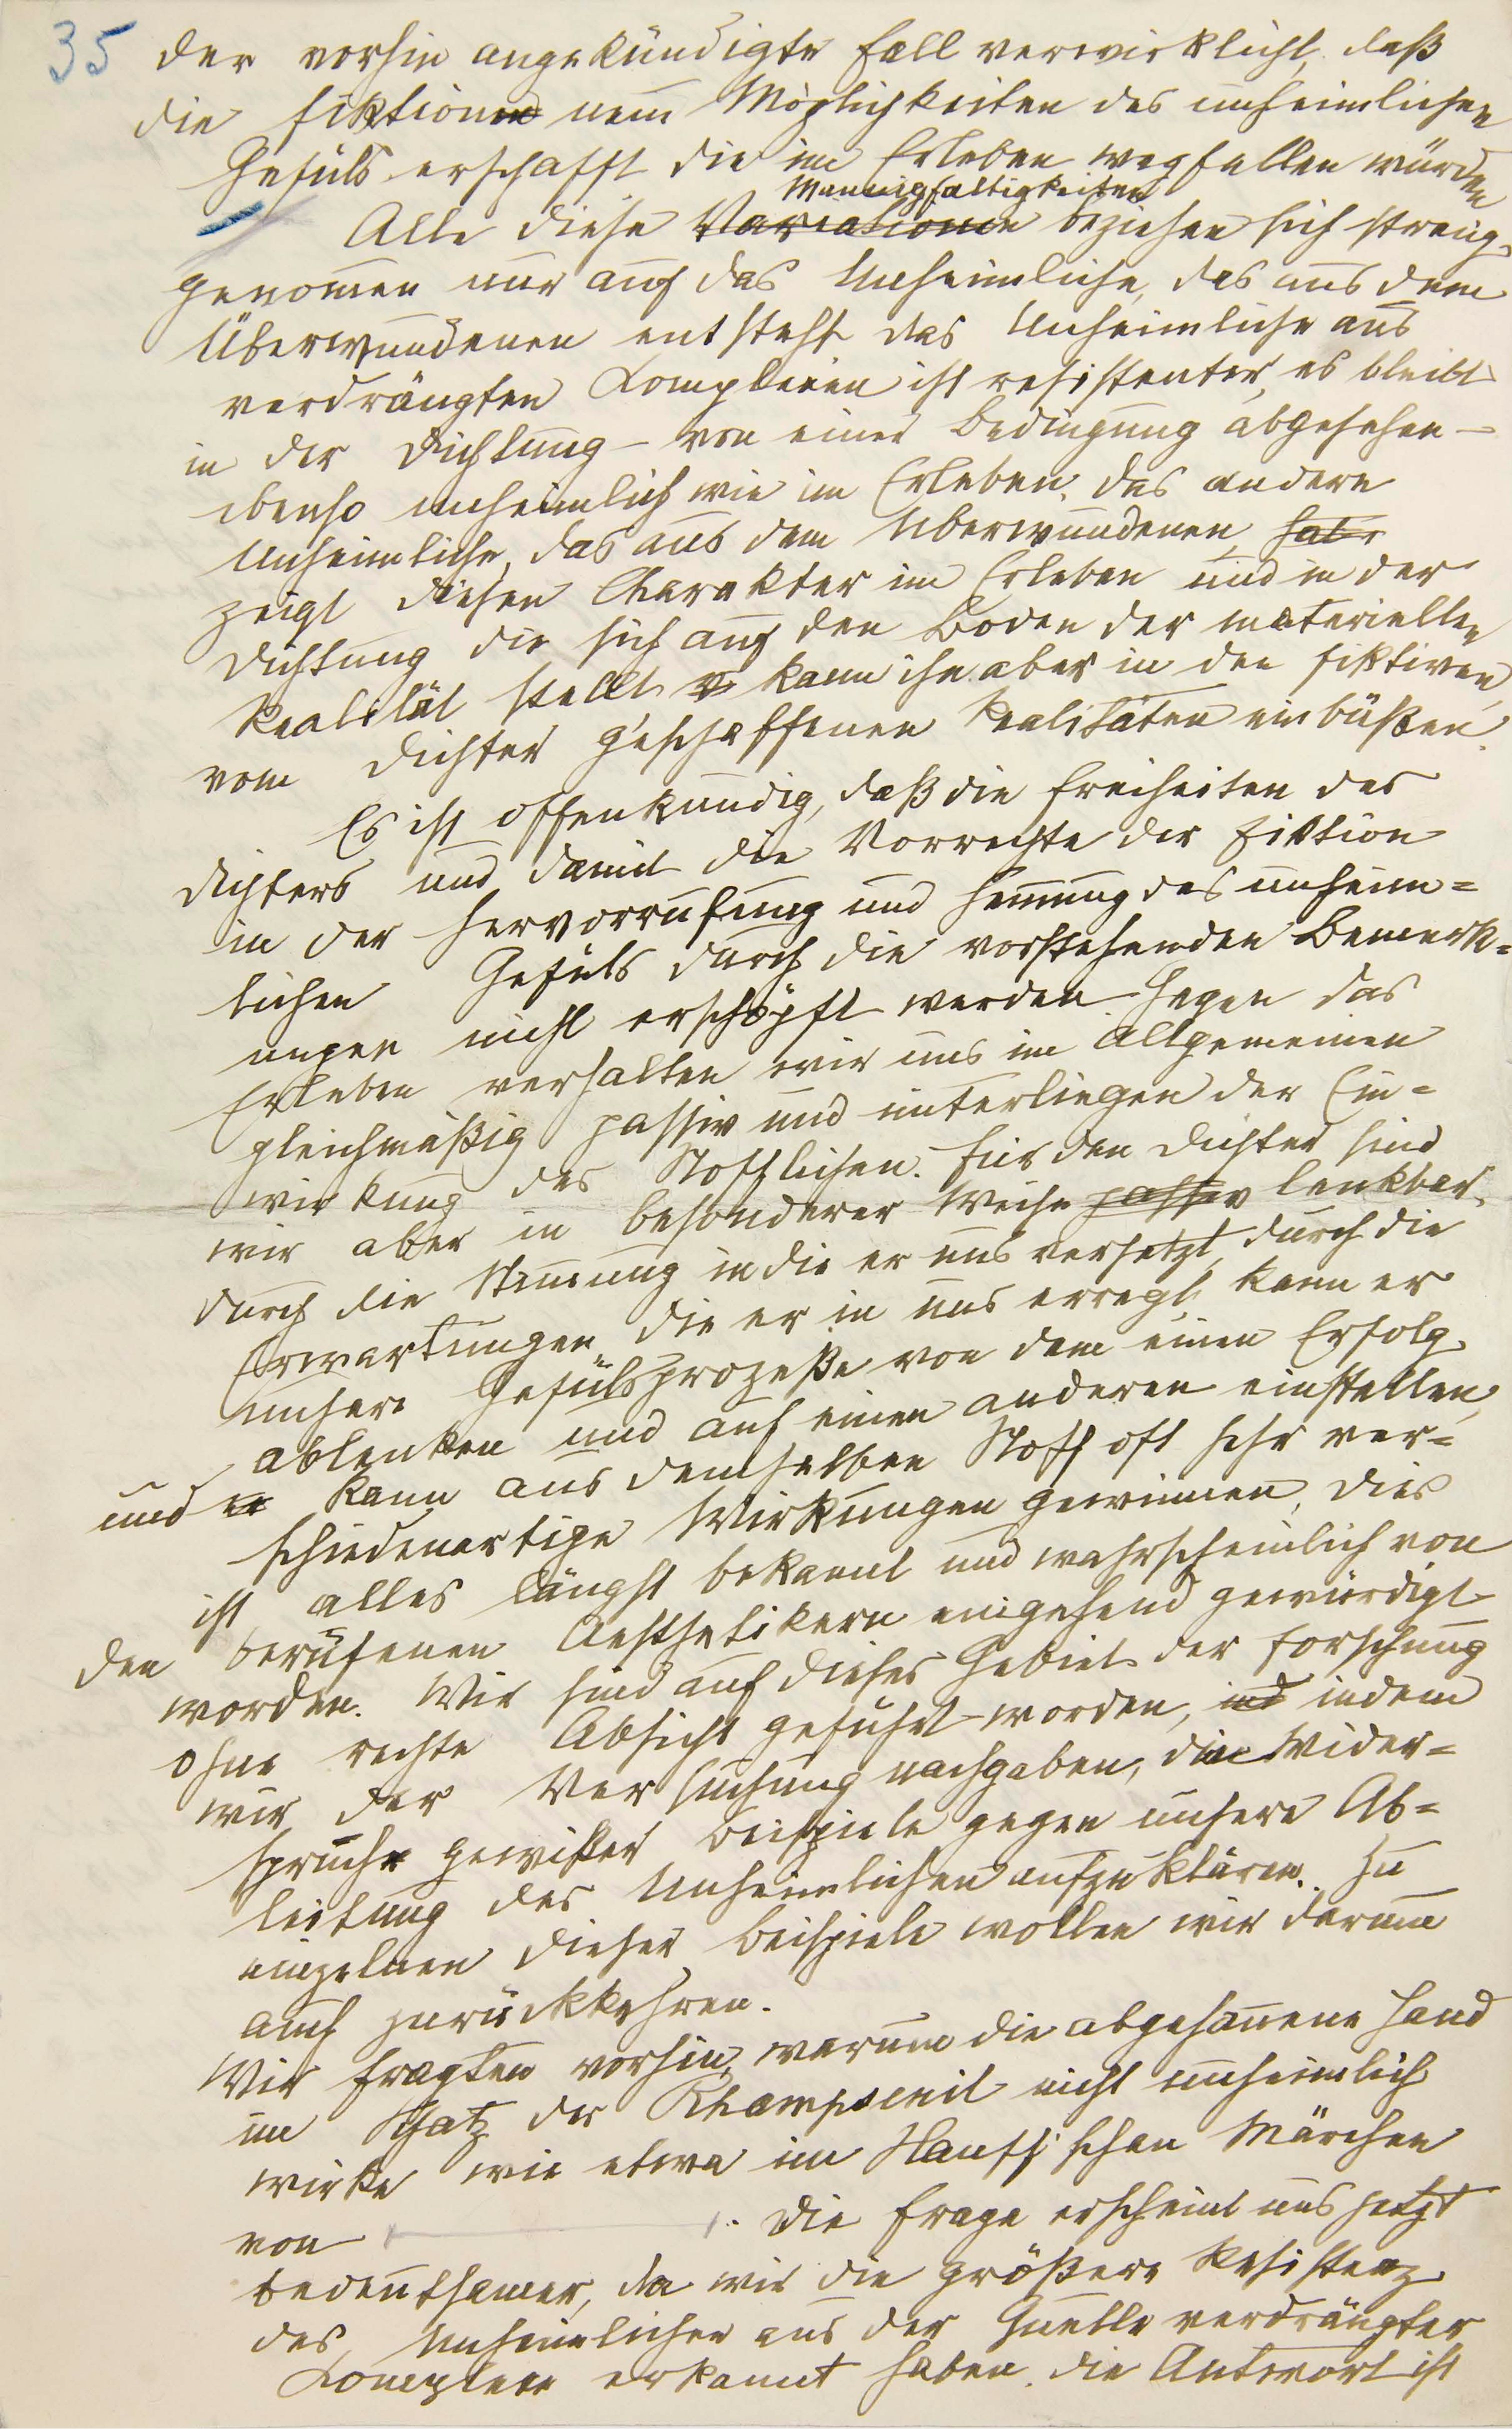 35
der vorhin angekündigte Fall verwirklicht, daß
die Fiktion neue Möglichkeiten des unheimlichen
Gefüls erschafft die im Erleben wegfallen würden
Mannigfaltigkeiten
Alle diese Variationen beziehen sich streng
genom̄en nur auf das Unheimliche, das aus dem
Überwundenen entsteht das Unheimliche aus
verdrängten Komplexen ist resistenter, es bleibt
in der Dichtung – von einer Bedingung abgesehen –
ebenso unheimlich wie im Erleben. Das andere
Unheimliche, das aus dem Uberwundenen, hat
zeigt diesen Charakter im Erleben und in der
Dichtung die sich auf den Boden der materiellen
Realität stellt, kann ihn aber in den fiktiven
vom Dichter geschaffenen Realitäten einbüßen.
Es ist offenkundig, daß die Freiheiten des
Dichters und damit die Vorrechte der Fiktion
in der Hervorrufung und Hem̄ung des unheim=
lichen Gefüls durch die vorstehenden Bemerk=
ungen nicht erschöpft werden. Gegen das
Erleben verhalten wir uns im Allgemeinen
gleichmäßig passiv und unterliegen der Ein=
wirkung des Stofflichen. Für den Dichter sind
wir aber in besonderer Weise passiv lenkbar,
durch die Stim̄ung in die er uns versetzt, durch die
Erwartungen, die er in uns erregt, kann er
unsere Gefülsprozeße von dem einen Erfolg
ablenken und auf einen anderen einstellen,
und er kann aus demselben Stoff oft sehr ver=
schiedenartige Wirkungen gewinnen, Dies
ist alles längst bekannt und wahrscheinlich von
den berufenen Aesthetikern eingehend gewürdigt
worden. Wir sind auf dieses Gebiet der Forschung
ohne rechte Absicht geführt worden, ind indem
wir der Versuchung nachgaben, die Wider=
spruch gewißer Beispiele gegen unsere Ab=
leitung des Unheimlichen aufzuklären. Zu
einzelnen dieser Beispiele wollen wir darum
auch zurückkehren.
Wir fragten vorhin, warum die abgehauene Hand
im Schatz des Rhampsenit nicht unheimlich
wirke wie etwa im Hauff'schen Märchen
von . Die Frage erscheint uns jetzt
bedeutsamer, da wir die größere Resistenz
des Unheimlichen aus der Quelle verdrängter
Komplexe erkannt haben. Die Antwort ist